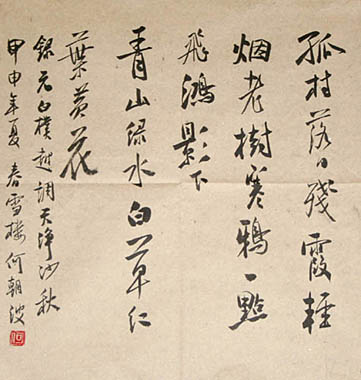 孤村落日殘霞輕
烟老樹寒鴉一點
飛鴻影下
青山綠水白草紅
葉黃花
錄元白樸越調天淨沙秋
甲申年夏春雪樓何朝波